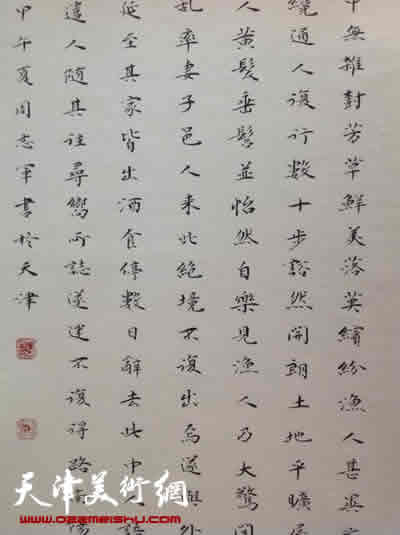 中無雜樹芳草鮮美落英繽紛漁人甚異
纔通人復行數十步豁然開朗土地平曠屋
人黃髮垂髫並怡然自樂見漁人乃大驚問
亂率妻子邑人來此絕境不復出焉遂與外
延至其家皆出酒食停數日辭去此中人語
遣人隨其往尋嚮所誌遂迷不復得路南陽
甲午夏周志軍書於天津
天津美術網
www.022meishu.com